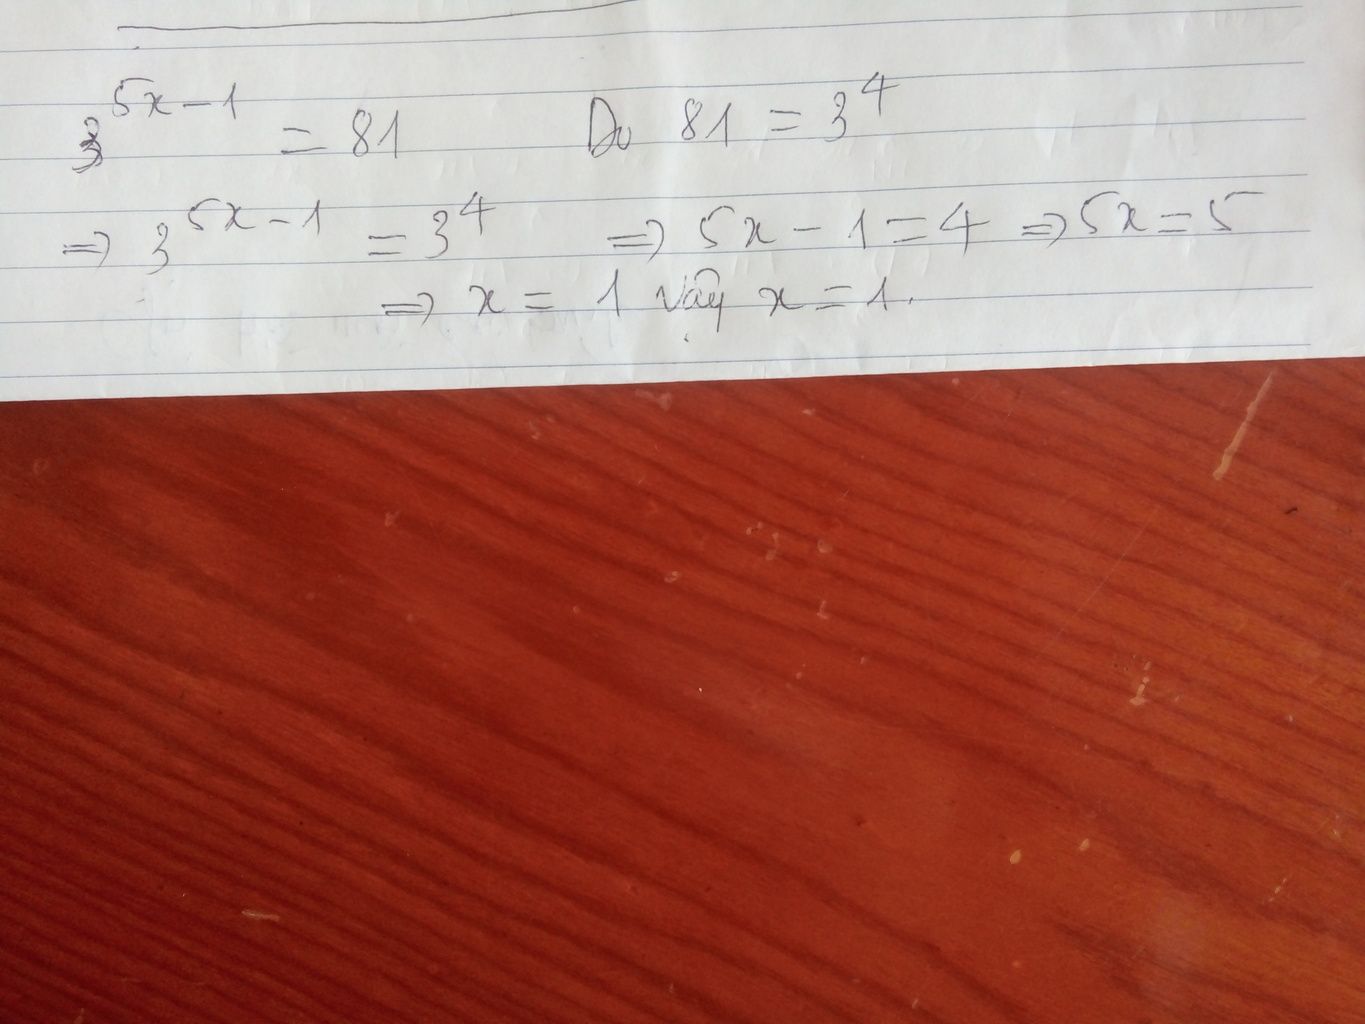 3^{5x-1} = 81 Do 81 = 3^4
⇒ 3^{5x-1} = 3^4 ⇒ 5x - 1 = 4 ⇒ 5x = 5
⇒ x = 1 Vậy x = 1.